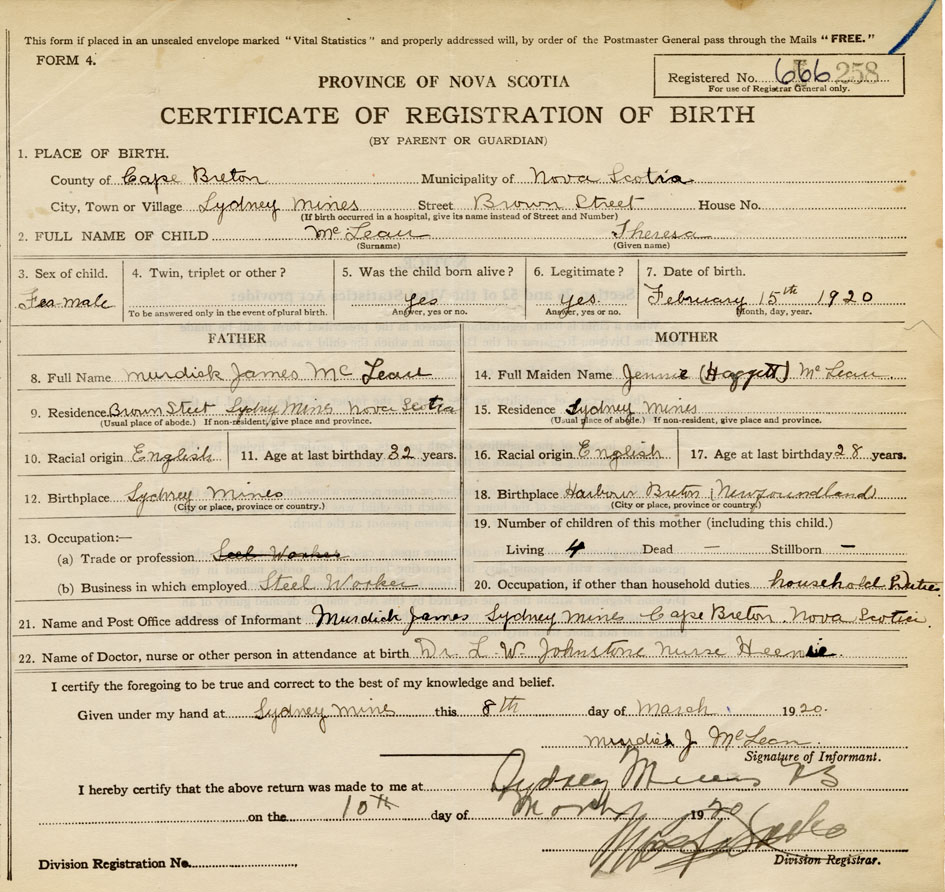 This form if placed in an unsealed envelope marked "Vital Statistics" and properly addressed will, by order of the Postmaster General pass through the Mails "FREE."
FORM 4.
Registered No. 666 258
For use of Registrar General only.
PROVINCE OF NOVA SCOTIA
CERTIFICATE OF REGISTRATION OF BIRTH
(BY PARENT OR GUARDIAN)
1. PLACE OF BIRTH.
County of Cape Breton Municipality of Nova Scotia
City, Town or Village Sydney Mines Street Brown Street House No.
(If birth occurred in a hospital, give its name instead of Street and Number)
2. FULL NAME OF CHILD McLean Theresa
(Surname) (Given name)
3. Sex of child. 4. Twin, triplet or other? 5. Was the child born alive? 6. Legitimate? 7. Date of birth.
Fea-male Yes Yes. February 15th 1920
To be answered only in the event of plural birth. Answer, yes or no. Answer, yes or no. Month, day, year.
FATHER MOTHER
8. Full Name Murdick James McLean 14. Full Maiden Name Jennie (Haggett) McLean
9. Residence Brown Steet Sydney Mines Nova Scotia 15. Residence Sydney Mines
(Usual place of abode.) If non-resident, give place and province. (Usual place of abode.) If non-resident, give place and province.
10. Racial origin English 11. Age at last birthday 32 years. 16. Racial origin English 17. Age at last birthday 28 years.
12. Birthplace Sydney Mines 18. Birthplace Harbour Breton (Newfoundland)
(City or place, province or country.) (City or place, province or country.)
19. Number of children of this mother (including this child.)
13. Occupation:—
(a) Trade or profession Steel Worker Living 4 Dead — Stillborn —
(b) Business in which employed Steel Worker 20. Occupation, if other than household duties household Duties
21. Name and Post Office address of Informant Murdick James Sydney Mines Cape Breton. Nova Scotia.
22. Name of Doctor, nurse or other person in attendance at birth Dr L. W. Johnstone Nurse
I certify the foregoing to be true and correct to the best of my knowledge and belief.
Given under my hand at Sydney Mines this 8th day of March 1920.
Murdick J. McLean
Signature of Informant.
I hereby certify that the above return was made to me at Sydney Mines
on the 10th day of March 1920
Division Registration No. Division Registrar.